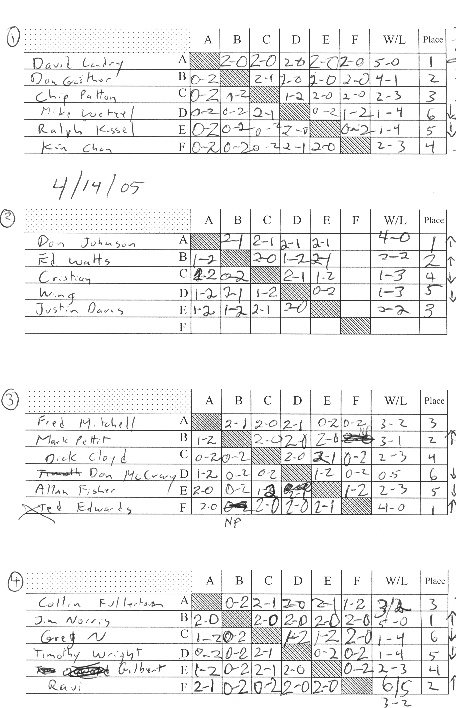 ① A B C D E F W/L Place
David Landry A 2-0 2-0 2-0 2-0 2-0 5-0 1
Don Gaither B 0-2 2-1 2-0 2-0 2-0 4-1 2
Chip Patton C 0-2 1-2 1-2 2-0 2-0 2-3 3
Mike Wetzel D 0-2 0-2 2-1 0-2 1-2 1-4 6 ↓
Ralph Kissel E 0-2 0-2 0-2 2-0 0-2 1-4 5 ↓
Kin Chan F 0-2 0-2 0-2 2-1 2-0 2-3 4
4/14/05
② A B C D E F W/L Place
Don Johnson A 2-1 2-1 2-1 2-1 4-0 1 ↑
Ed Watts B 1-2 2-0 1-2 2-1 2-2 2 ↑
Cristian C 1-2 0-2 2-1 1-2 1-3 4 ↓
Wing D 1-2 2-1 1-2 0-2 1-3 5 ↓
Justin Davis E 1-2 1-2 2-1 2-0 2-2 3
F
③ A B C D E F W/L Place
Fred Mitchell A 2-1 2-0 2-1 0-2 0-2 3-2 3
Mark Pettit B 1-2 2-0 2-0 2-0 3-1 2 ↑
Dick Cloyd C 0-2 0-2 2-0 2-1 0-2 2-3 4
Don McCrary D 1-2 0-2 0-2 1-2 0-2 0-5 6 ↓
Allan Fisher E 2-0 0-2 1-2 1-2 2-3 5 ↓
Ted Edwards F 2-0 2-0 2-0 2-1 4-0 1 ↑
NP
④ A B C D E F W/L Place
Collin Fullerton A 0-2 2-1 2-0 2-1 1-2 3/2 3
Jim Norris B 2-0 2-0 2-0 2-0 2-0 5-0 1 ↑
Greg N C 1-2 0-2 1-2 1-2 2-0 1-4 6 ↓
Timothy Wright D 0-2 0-2 2-1 0-2 0-2 1-4 5 ↓
Gilbert E 1-2 0-2 2-1 2-0 0-2 2-3 4
Ravi F 2-1 0-2 0-2 2-0 2-0 2 ↑
3-2